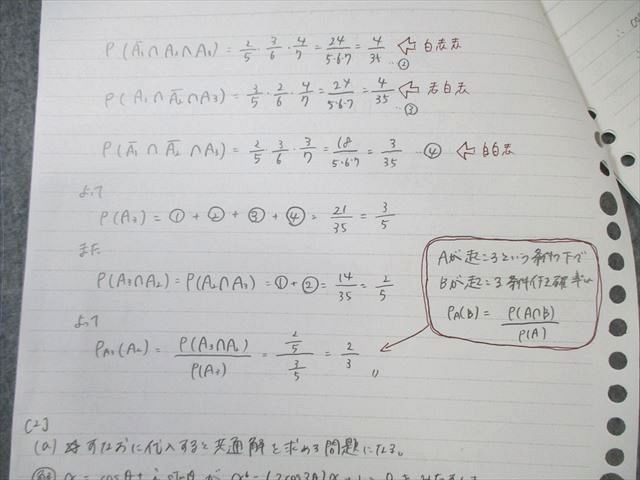 P(Ā₁∩A₂∩A₃) = 2/5・3/6・4/7 = 24/5・6・7 = 4/35 …② ⇐ 白赤赤
P(A₁∩Ā₂∩A3) = 3/5・2/6・4/7 = 24/5・6・7 = 4/35 …③ ⇐ 赤白赤
P(Ā₁∩Ā₂∩A₃) = 2/5・3/6・3/7 = 18/5・6・7 = 3/35 …④ ⇐ 白白赤
よって
P(A₃) = ① + ② + ③ + ④ = 21/35 = 3/5
また
P(A₃∩A₂) = P(A₂∩A₃) = ① + ② = 14/35 = 2/5
よって
P_A₃(A₂) = P(A₃∩A₂)/P(A₃) = (2/5)/(3/5) = 2/3 〃
Aが起こるという条件下で
Bが起こる条件付き確率は
P_A(B) = P(A∩B)/P(A)
[2]
(a) すなおに代入すると共通解を求める問題になる。